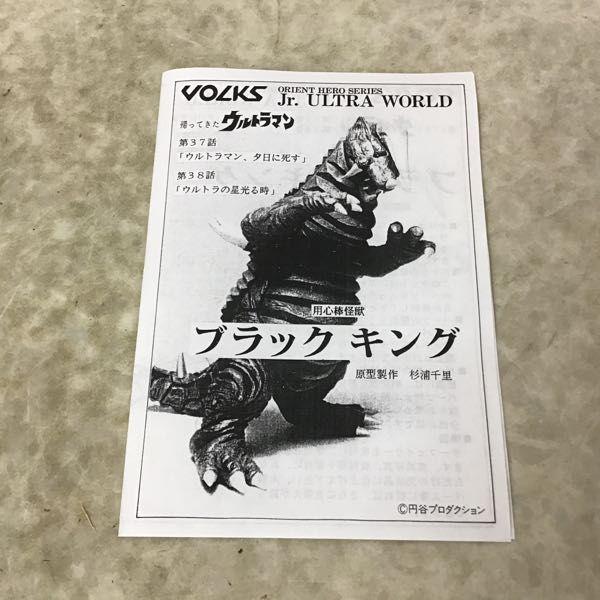 VOLKS
ORIENT HERO SERIES
Jr. ULTRA WORLD
帰ってきたウルトラマン
第37話
「ウルトラマン、夕日に死す」
第38話
「ウルトラの星光る時」
用心棒怪獣
ブラック キング
原型製作 杉浦千里
©円谷プロダクション